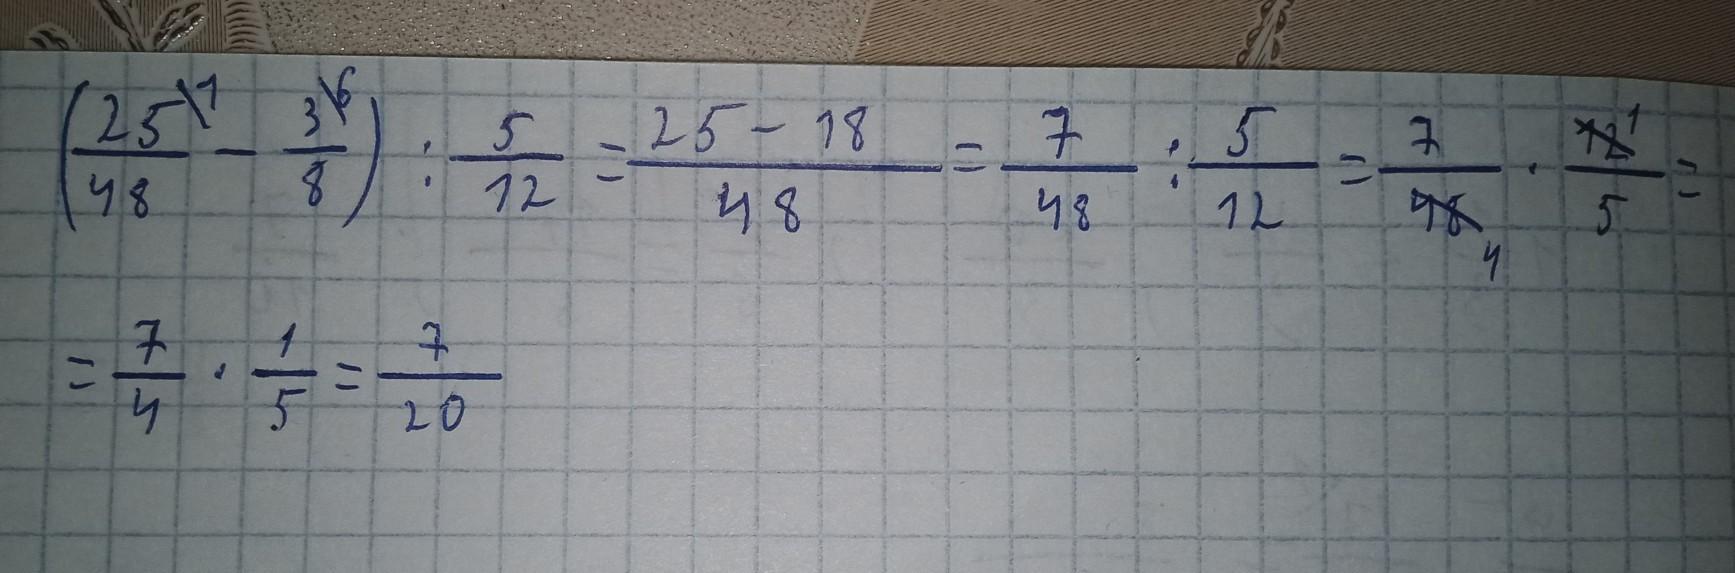 (25\1/48 − 3\6/8) : 5/12 = (25 − 18)/48 = 7/48 : 5/12 = 7/48 4 · 12 1/5 =
= 7/4 · 1/5 = 7/20